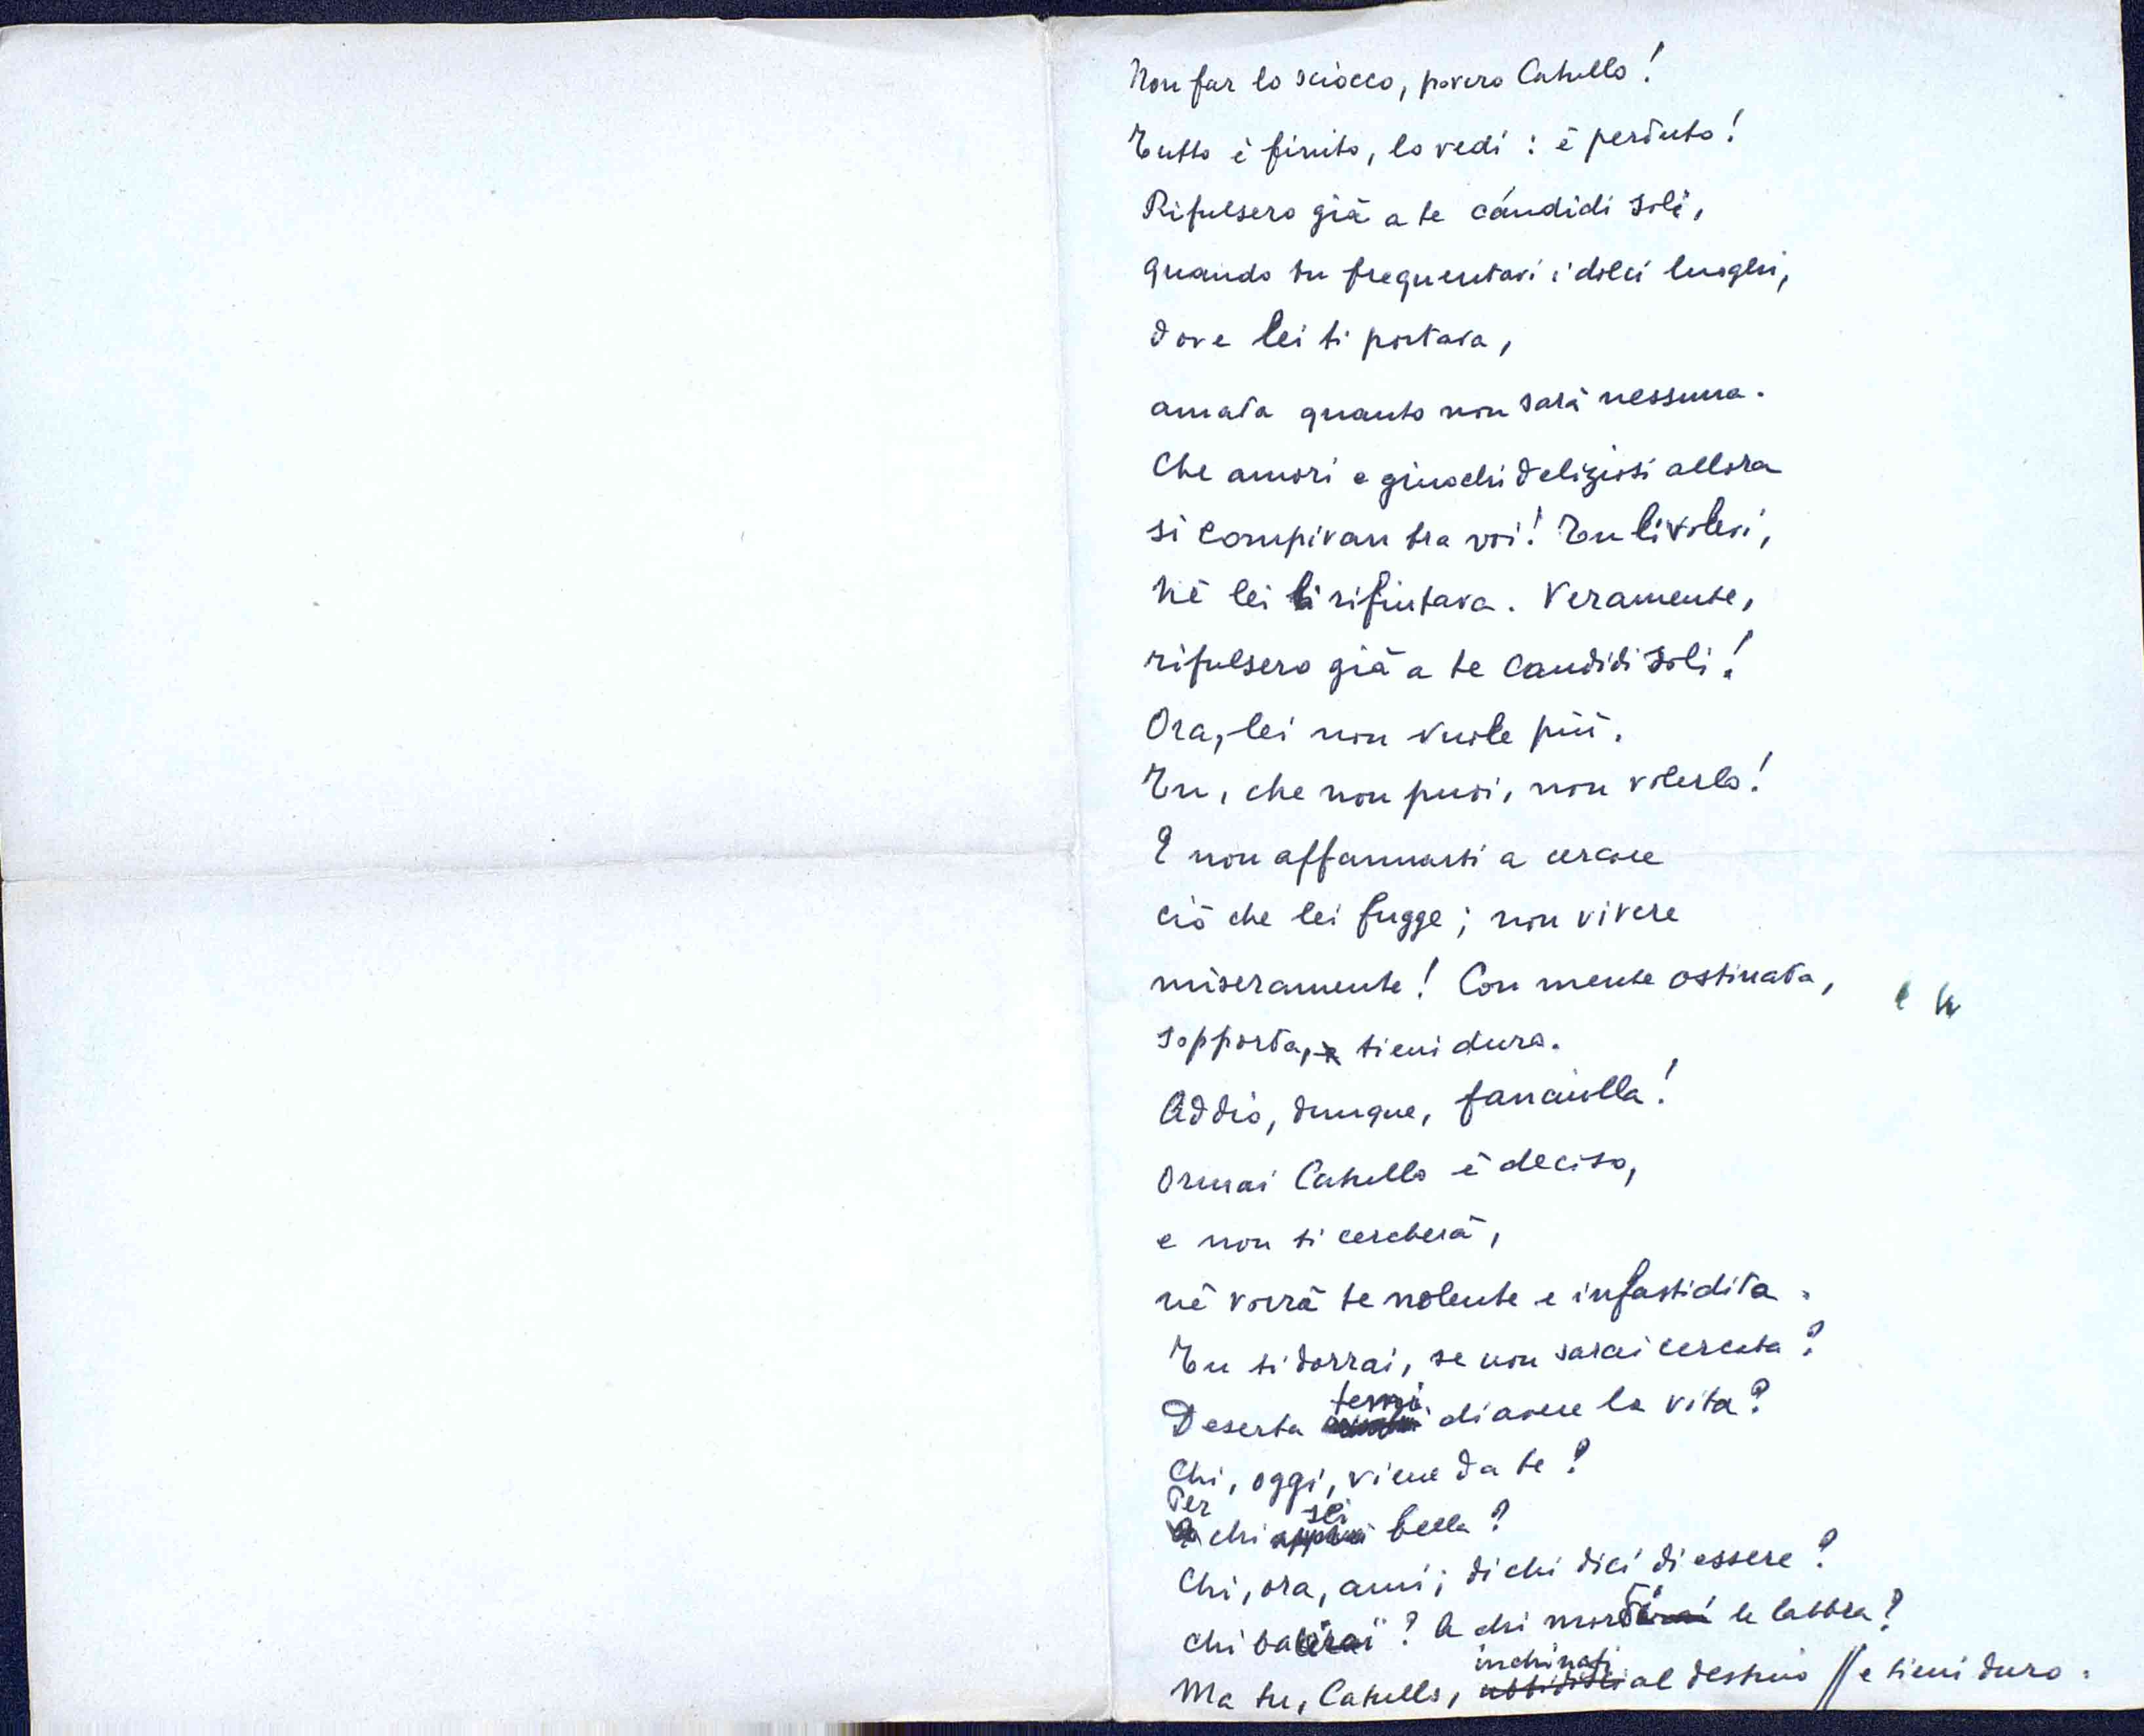 Non far lo sciocco, povero Catullo!
Tutto è finito, lo vedi: è perduto!
Rifulsero già a te cándidi soli,
quando tu frequentavi i dolci luoghi,
dove lei ti portava,
amata quanto non sarà nessuna.
Che amori e giuochi deliziosi allora
si compivan tra voi! Tu li volevi,
Né lei li rifiutava. Veramente,
rifulsero già a te candidi soli!
Ora, lei non vuole più.
Tu, che non puoi, non volerlo!
E non affannarti a cercare
ciò che lei fugge; non vivere
miseramente! Con mente ostinata,
sopporta, e tieni duro.
Addio, dunque, fanciulla!
Ormai Catullo è deciso,
e non ti cercherà,
né vorrà te nolente e infastidita.
Tu ti dorrai, se non sarai cercata?
temi
Deserta di avere la vita?
Chi, oggi, viene da te?
Per sei
A chi appari bella?
Chi, ora, ami; di chi dici di essere?
Chi bacerai? A chi morderai le labbra?
inchinati
Ma tu, Catullo, ubbidisci al destino // e tieni duro.